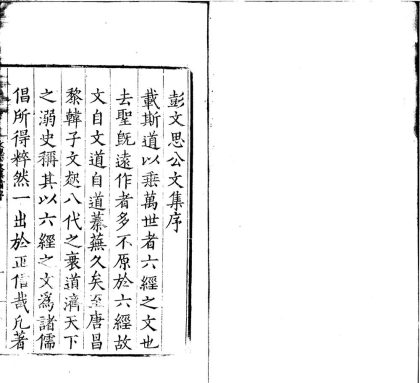 彭文思公文集序
載斯道以垂萬世者六經之文也
去聖既遠作者多不原於六經故
文自文道自道蓁蕪久矣至唐昌
黎韓子文起八代之衰道濟天下
之溺史稱其以六經之文為諸儒
倡所得粹然一出於正信哉凡著